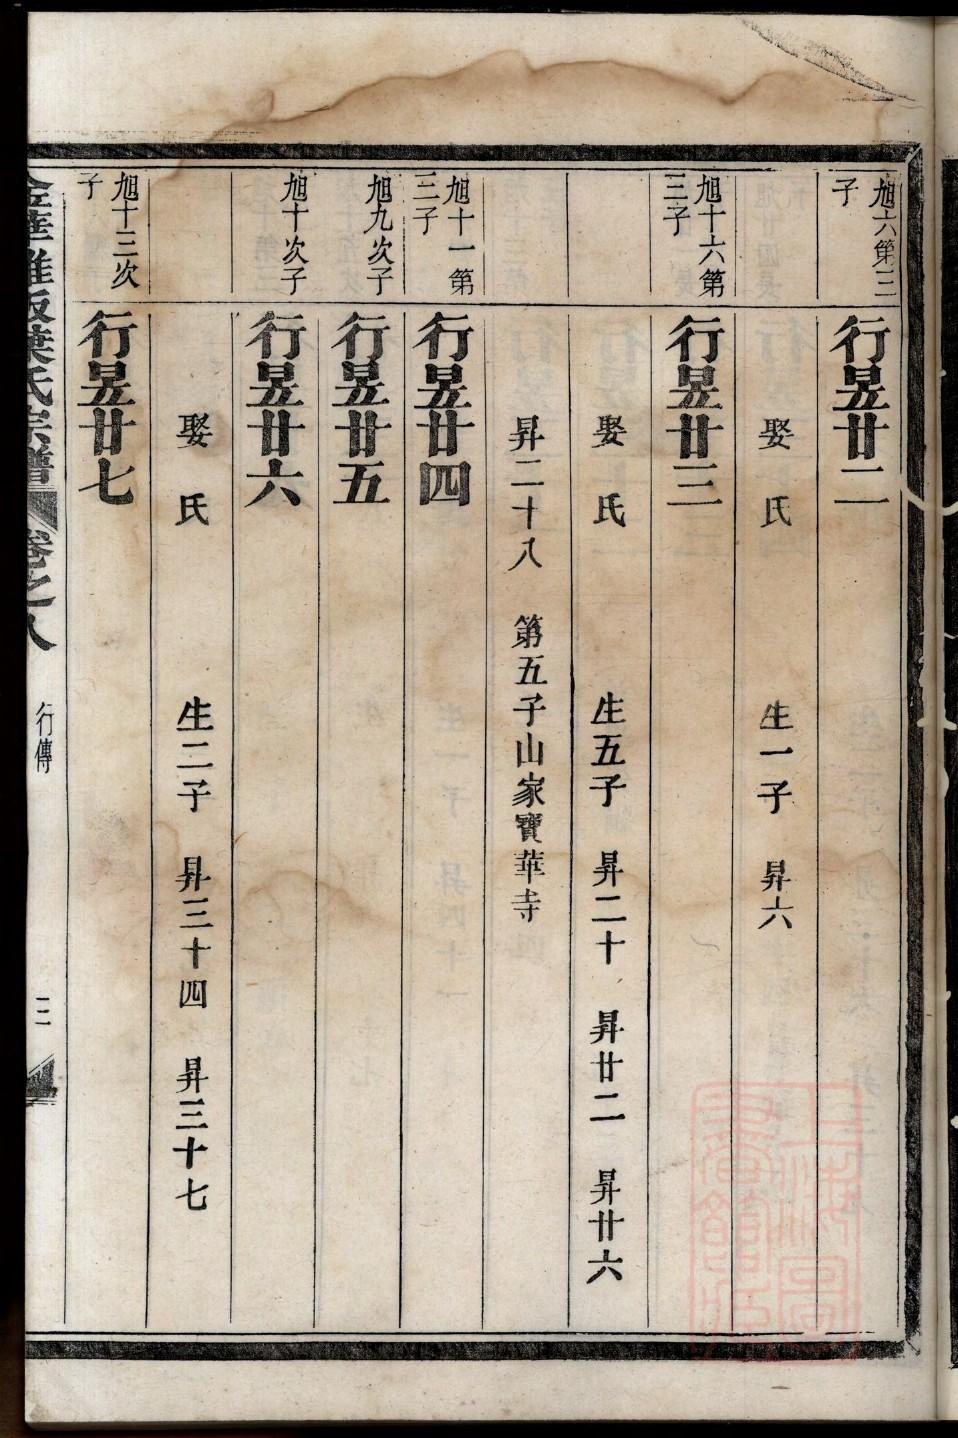 旭六第三子
行昱廿二
娶氏 生一子 昇六
旭十六第三子
行昱廿三
娶氏 生五子 昇二十 昇廿二 昇廿六
昇二十八 第五子山家寶華寺
旭十一第三子
行昱廿四
旭九次子
行昱廿五
旭十次子
行昱廿六
娶氏 生二子 昇三十四 昇三十七
旭十三次子
行昱廿七
葉氏宗譜 卷之八 行傳 三